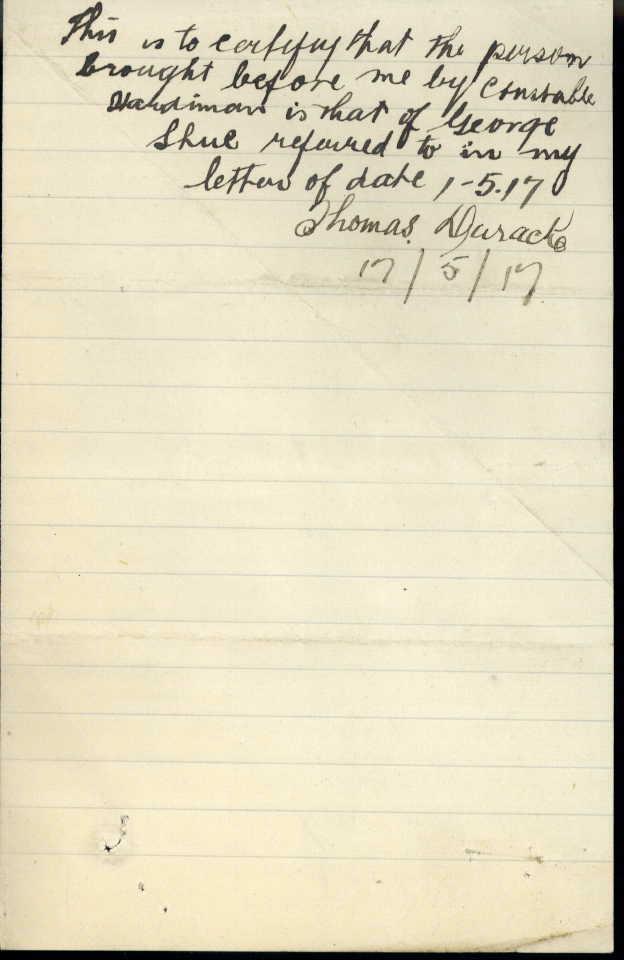 This is to certifuy that the person
brought before me by Constable
Hardiman is that of George
Shue referred to in my
letter of date 1-5.17
Thomas Durack
17/5/17